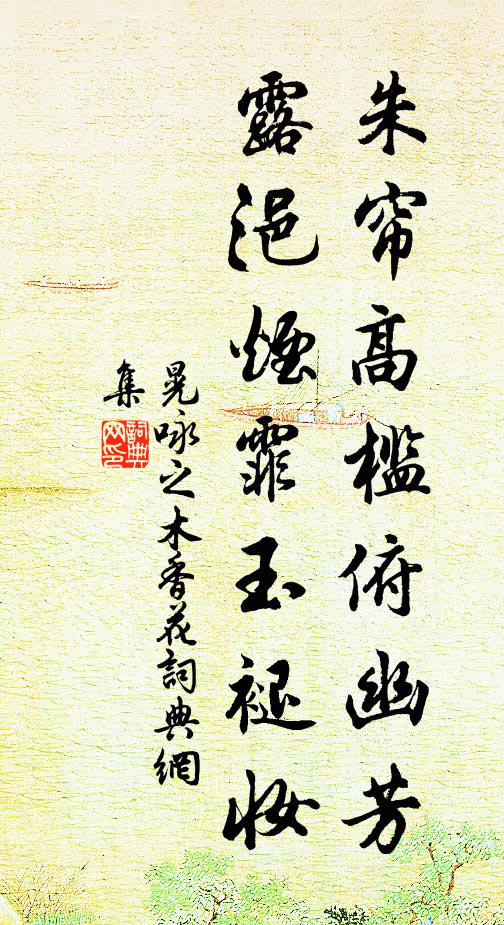 朱帘高槛俯幽芳
露浥烟霏玉褪妆
晁咏之木香花詞典網
集
詞典网印